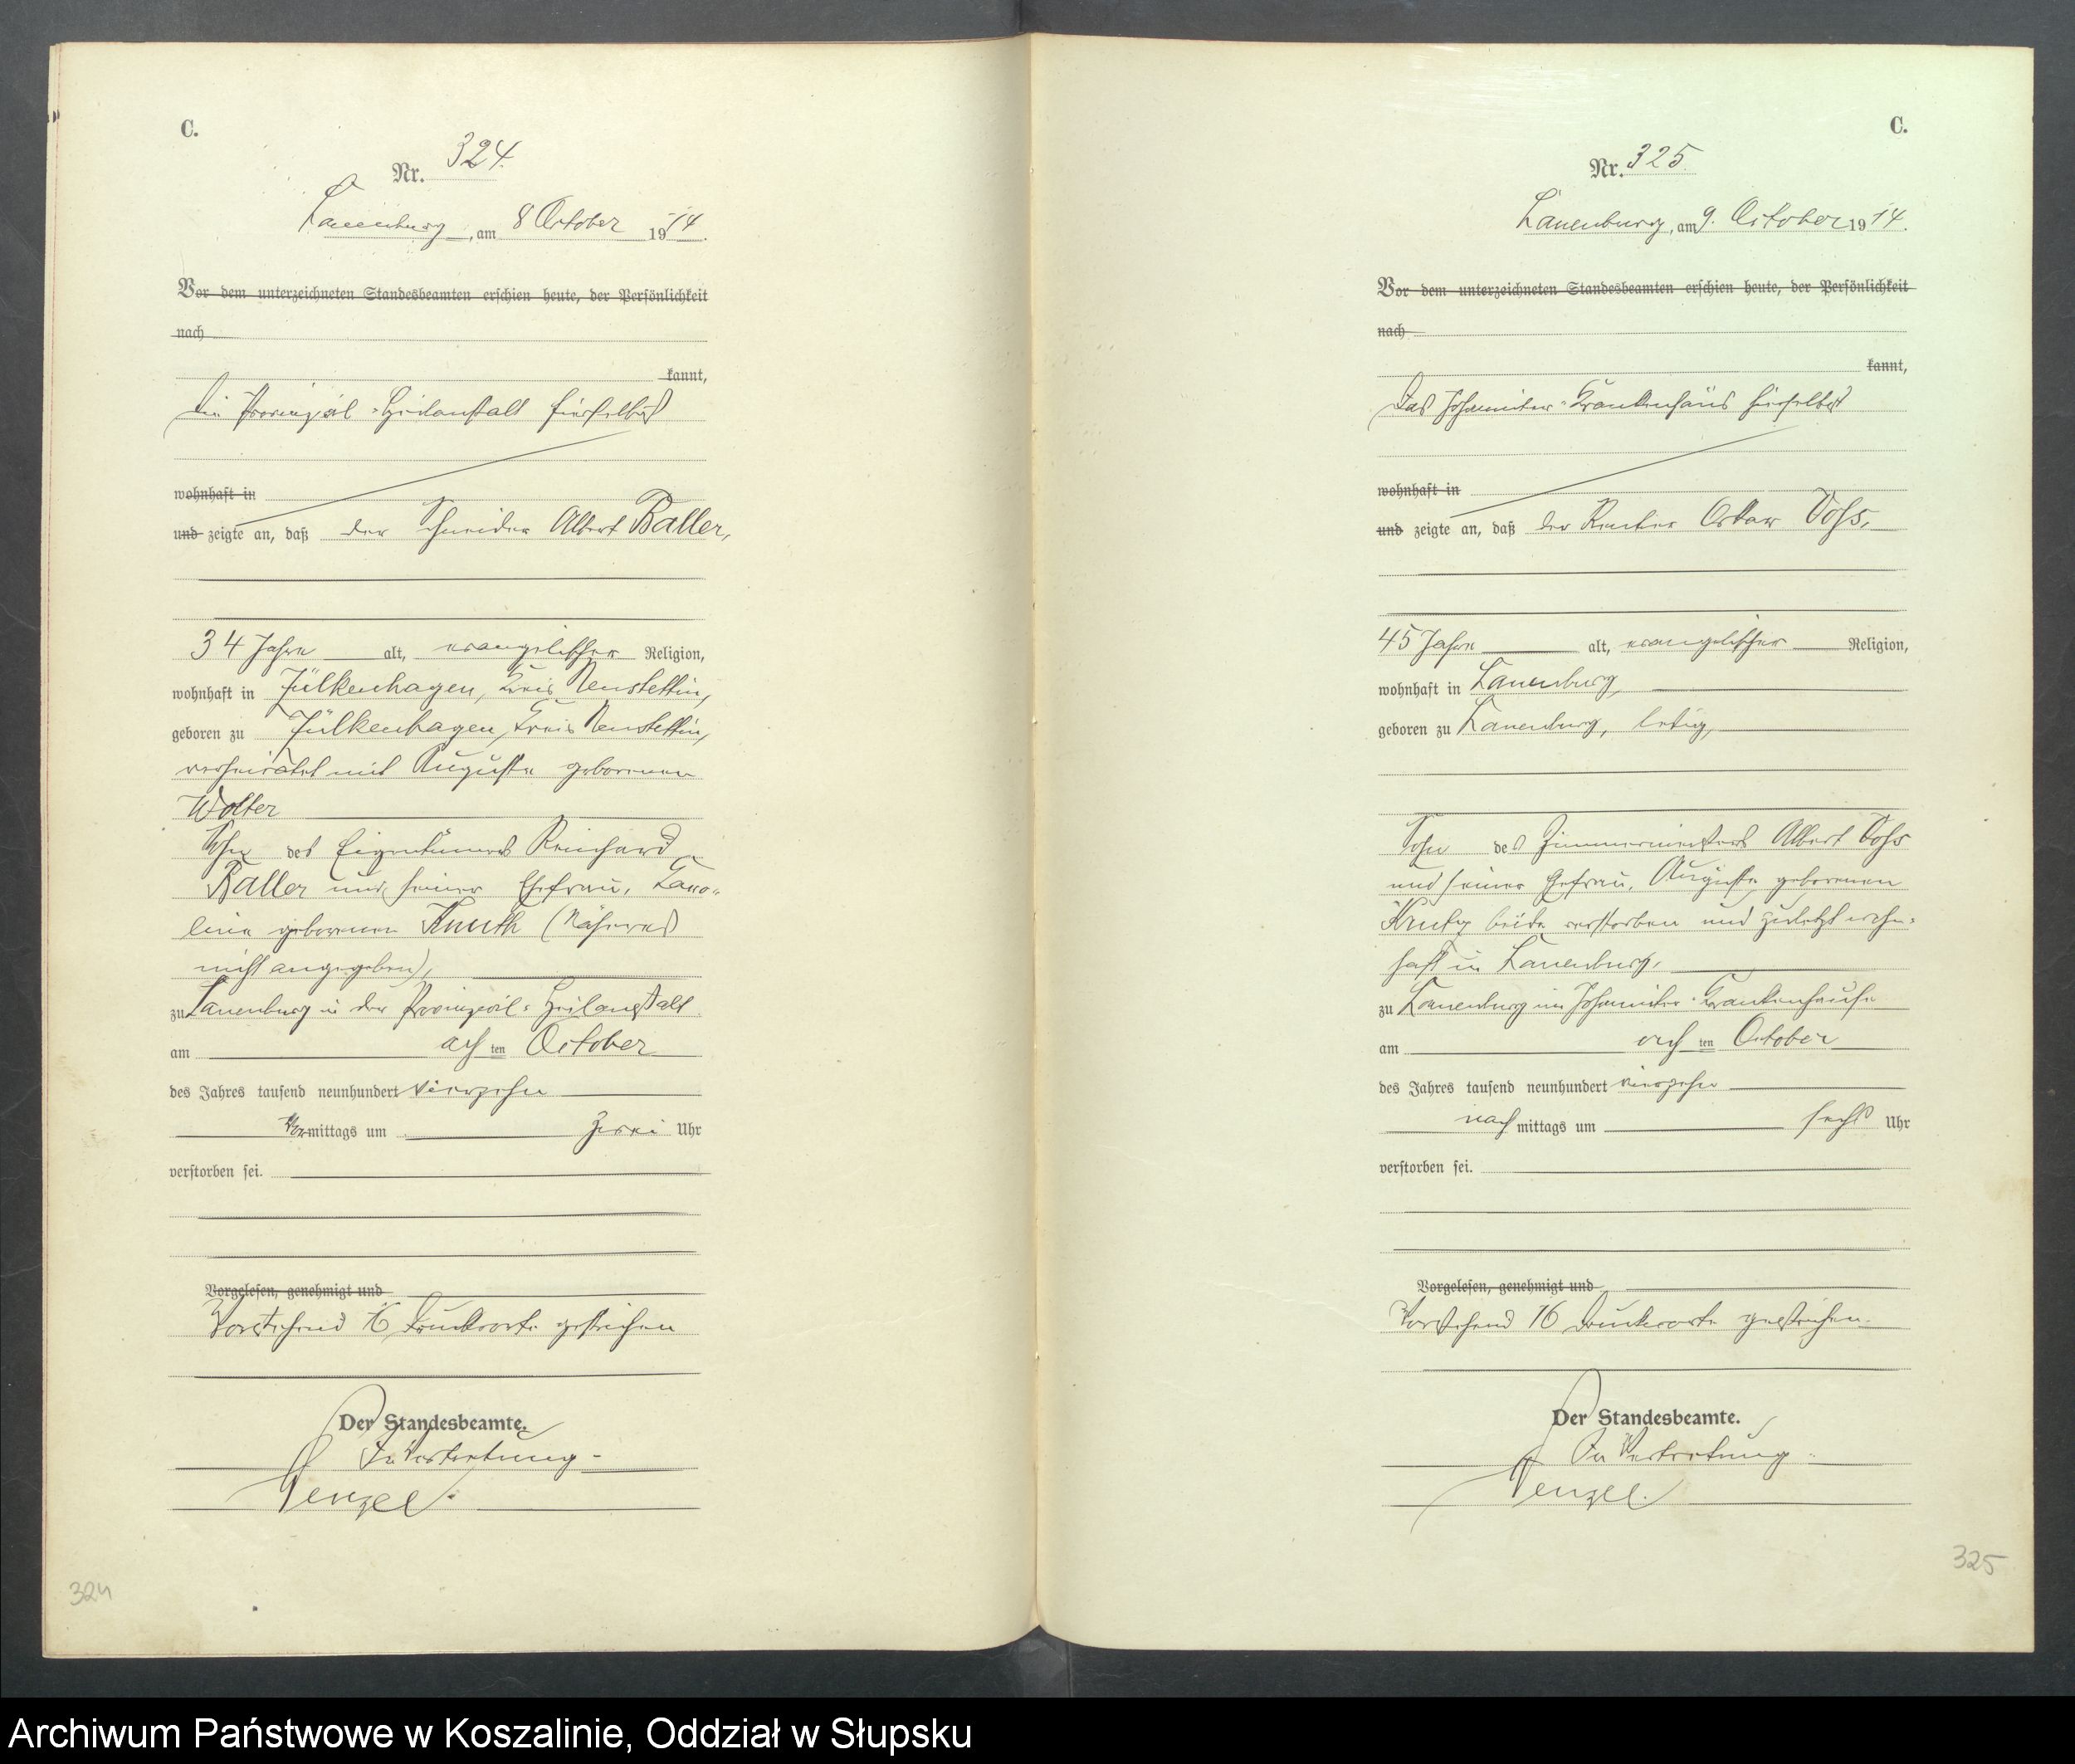 C.
Nr. 324.
Lauenburg, am 8 October 1914.
Vor dem unterzeichneten Standesbeamten erschien heute, der Persönlichkeit
nach
kannt,
Die Provinzial-Heilanstalt hierselbst
wohnhaft in
und zeigte an, daß der Schneider Albert Baller,
34 Jahre alt, evangelischer Religion,
wohnhaft in Jülkenhagen, Kreis Neustettin,
geboren zu Jülkenhagen, Kreis Neustettin,
verheiratet mit Auguste geborenen
Wolter
Sohn des Eigentümers Reinhard
Baller und seiner Ehefrau, Karo-
line geborenen Knuth (Näheres
nicht angegeben),
zu Lauenburg in der Provinzial-Heilanstalt
am achten October
des Jahres tausend neunhundert vierzehn
Vormittags um zwei Uhr
verstorben sei.
Vorgelesen, genehmigt und
Vorstehend 16 Druckworte gestrichen
Der Standesbeamte.
In Vertretung
Wenzel.
324
C.
Nr. 325.
Lauenburg, am 9. October 1914.
Vor dem unterzeichneten Standesbeamten erschien heute, der Persönlichkeit
nach
kannt,
Das Johanniter-Krankenhaus hierselbst
wohnhaft in
und zeigte an, daß der Rentier Oskar Voss,
45 Jahre alt, evangelischer Religion,
wohnhaft in Lauenburg,
geboren zu Lauenburg, ledig,
Sohn des Zimmermeisters Albert Voss
und seiner Ehefrau, Auguste geborenen
beide verstorben und zuletzt wohn-
haft in Lauenburg,
zu Lauenburg im Johanniter-Krankenhause
am achten October
des Jahres tausend neunhundert vierzehn
nachmittags um sechs Uhr
verstorben sei.
Vorgelesen, genehmigt und
Vorstehend 16 Druckworte gestrichen.
Der Standesbeamte.
In Vertretung
Wenzel.
325
Archiwum Państwowe w Koszalinie, Oddział w Słupsku